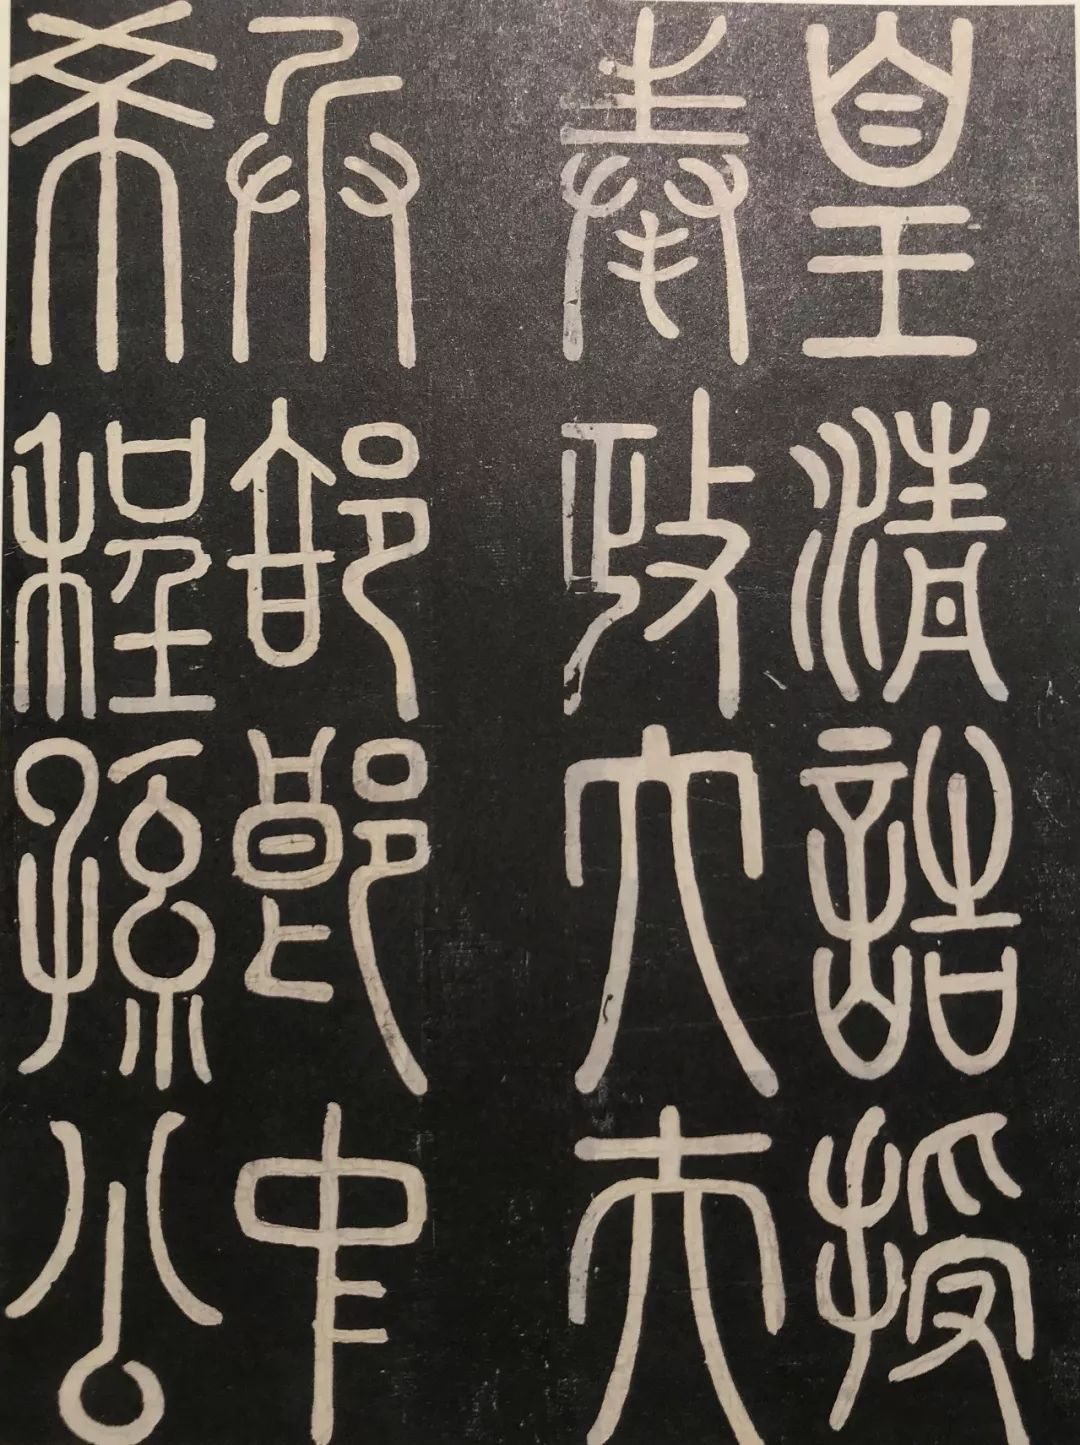 皇清誥授
奉政大夫
兵部郎中
希程孫公